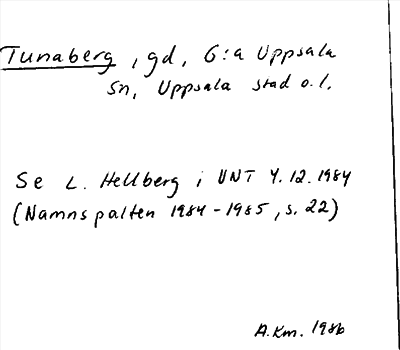 Tunaberg, gd, G:a Uppsala
Sn, Uppsala stad o.l.
Se L. Hellberg i UNT 4.12.1984
(Namnspalten 1984-1985, s. 22)
A.Km. 1986